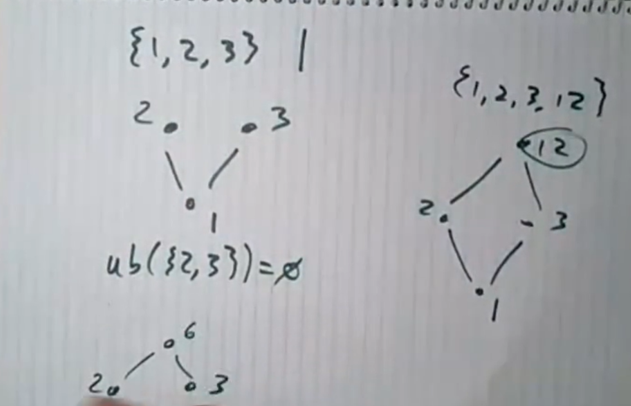 {1, 2, 3} |
2 3
1
ub({2,3})=∅
6
2 3
{1, 2, 3, 12}
12
2 3
1